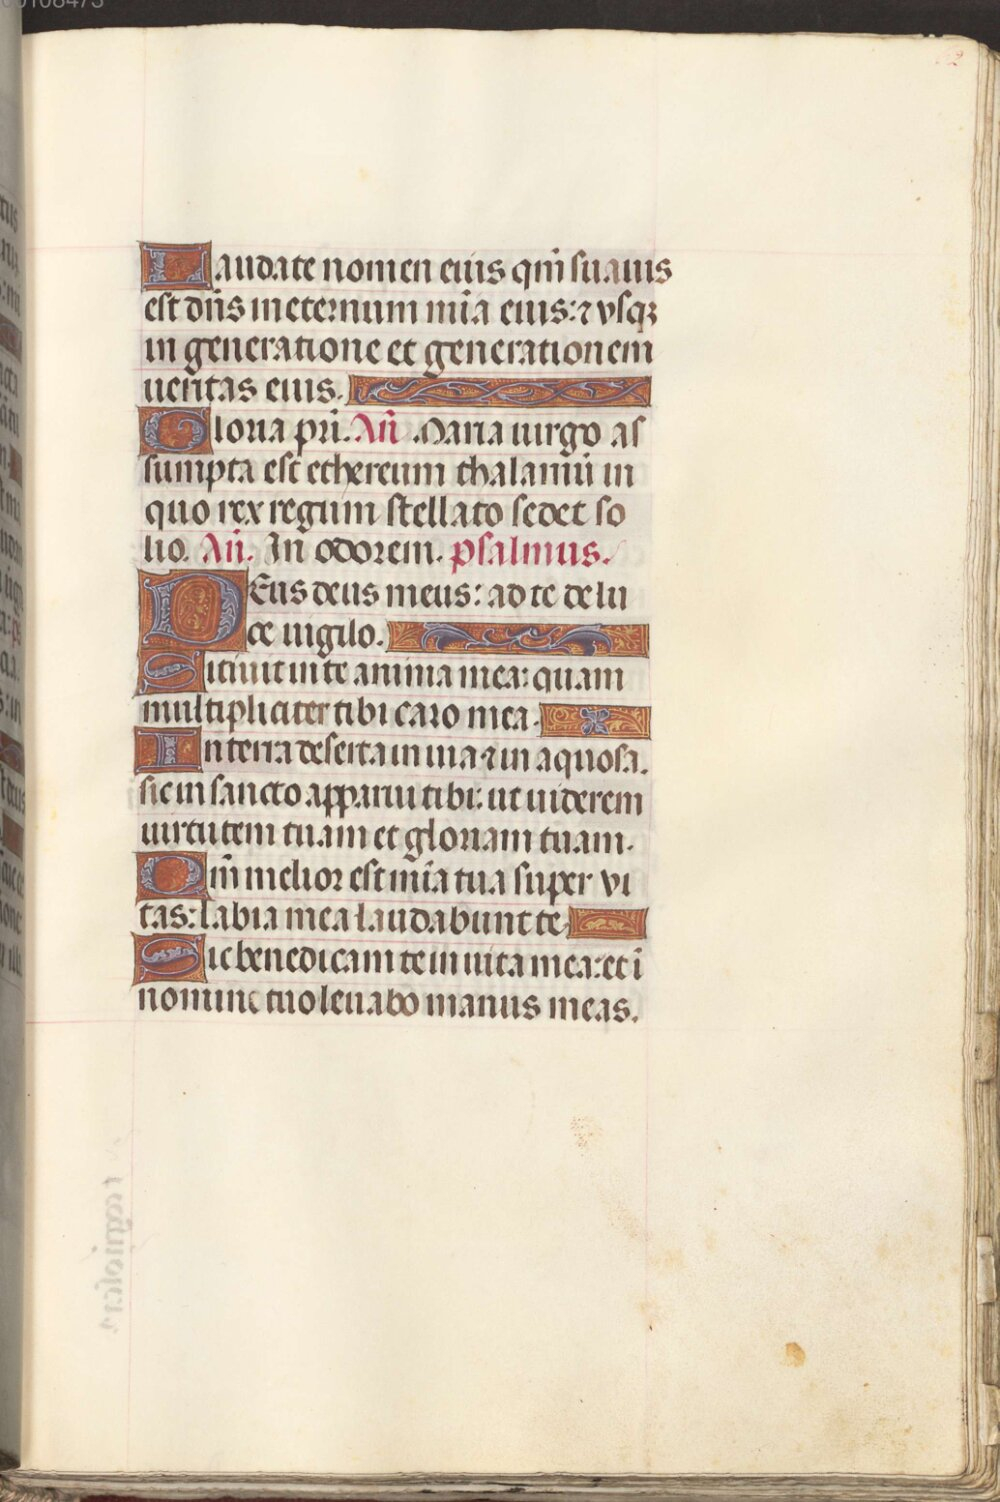 Laudate nomen eius qm̄ suauis
est dn̄s in eternum mīa eius: ⁊ vsqꝫ
in generatione et generationem
ueritas eius.
Gloria pr̄i. An̄. Maria uirgo as
sumpta est ethereum thalamū in
quo rex regum stellato sedet so
lio. An̄. In odorem. psalmus.
DEus deus meus: ad te de lu
ce uigilo.
Sitiuit in te anima mea: quam
multipliciter tibi caro mea.
In terra deserta in uia ⁊ in aquosa.
sic in sancto apparui tibi: ut uiderem
uirtutem tuam et gloriam tuam.
Qm̄ melior est mīa tua super vi
tas: labia mea laudabunt te
Sic benedicam te in uita mea: et ī
nomine tuo leuabo manus meas.